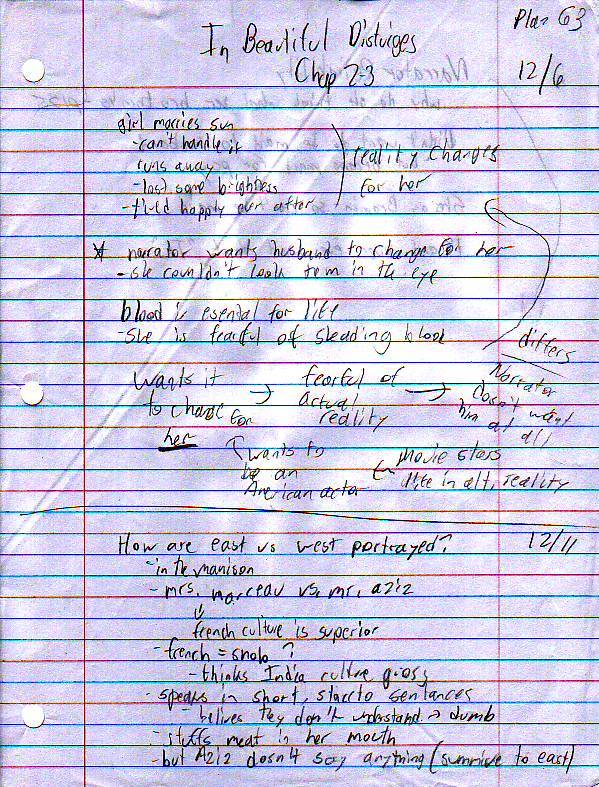 Plaz 63
In Beautiful Distuiges
Chap 2-3
12/6
girl marries sun
-can't handle it
runs away
-lost some brightness
happly evr after
reality changes
for her
* narrator wants husband to change for her
- she couldn't look in the eye
blood is esental for life
-she is fearful of sheading blood
differs
wants it
to change for
her
→ fearful of
actual
reality
→ Narrator
doesn't want
him at all
↑ wants to
be an
American actor
← Movie stars
live in alt, reality
How are east vs west portrayed?
12/11
-in the manison
- mrs. marceau vs. mr. aziz
french culture is superior
- french = snob ?
- thinks India culture gross
- speaks in short, staccto sentances
- belives they don't understand → dumb
- stuffs meat in her mouth
- but Aziz dosn't say anything ( to east)